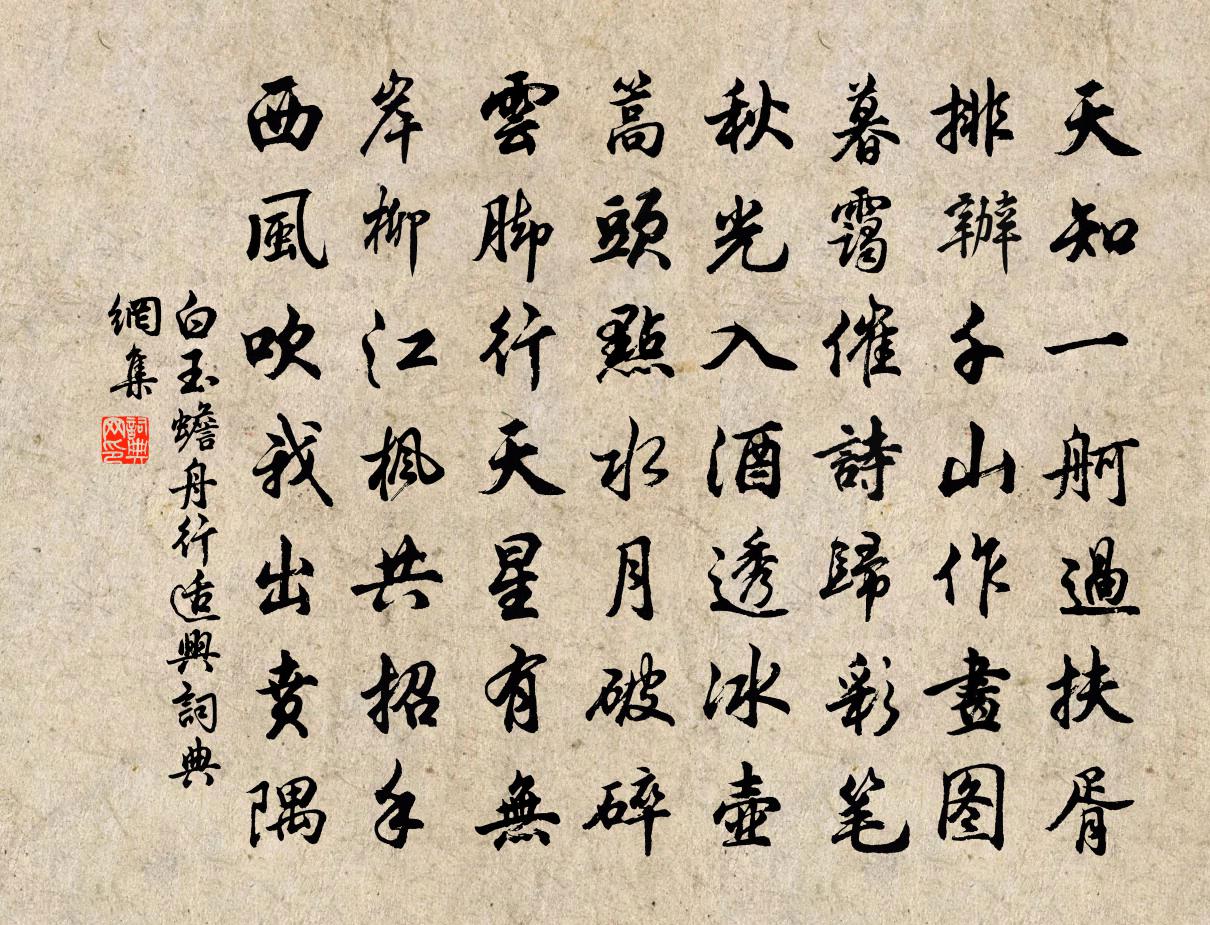 天知一舸過扶胥
排辦千山作畫图
暮靄催詩歸彩笔
秋光入酒透冰壺
篙頭點水月破碎
雲脚行天星有無
岸柳江楓共招手
西風吹我出賁隅
白玉蟾舟行适興詞典
網集
詞典
网印